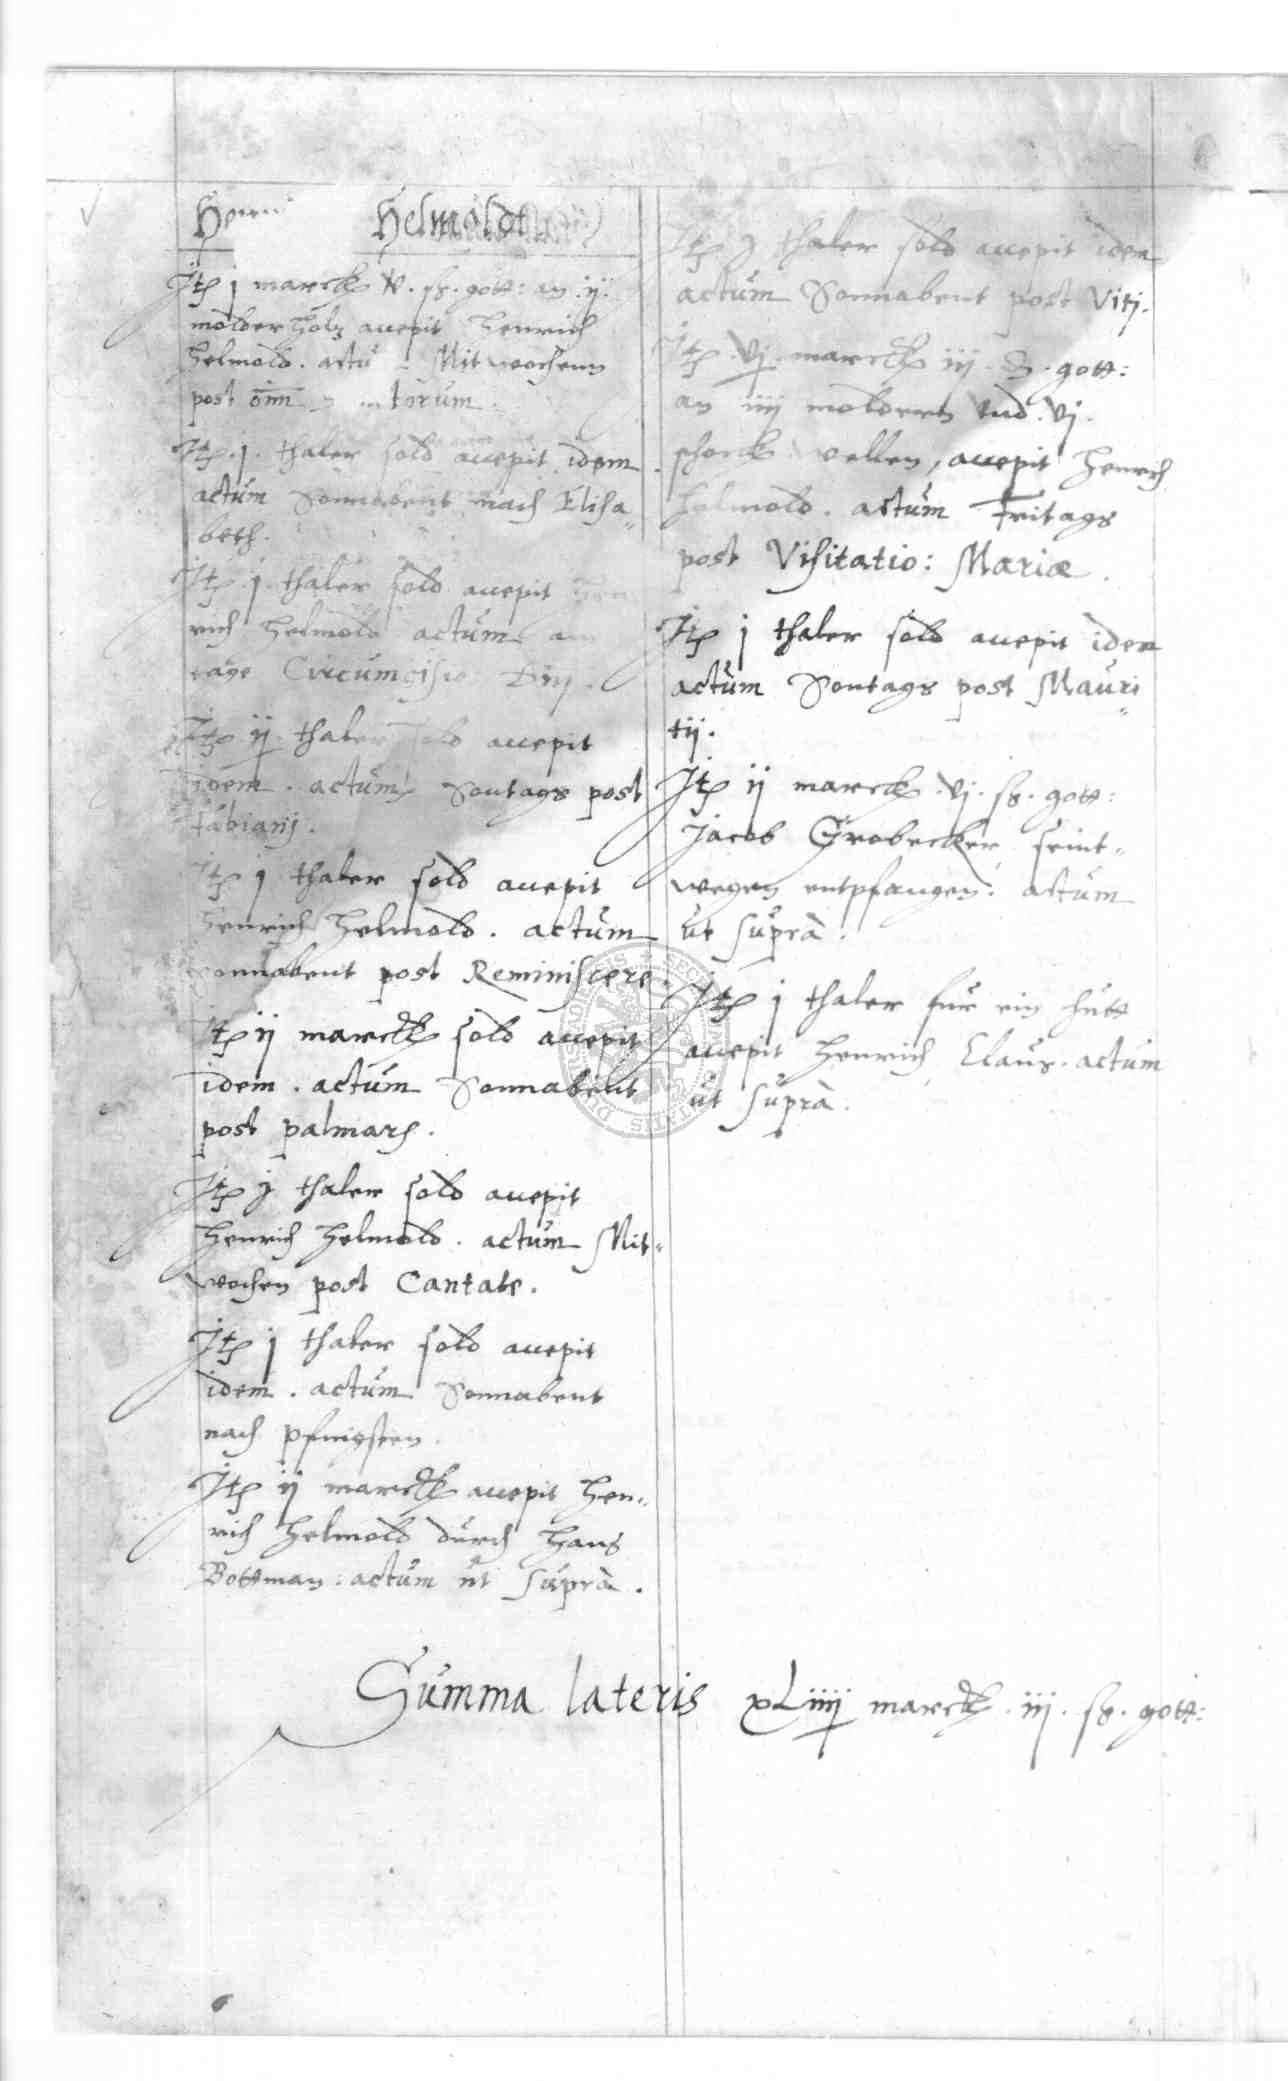 Helmoldt
Jtem j marck v. ß. gott: an ij.
molder holtz accepit Henrich
Helmold. actu Mitwochenn
post omn torum.
Jtem j. thaler sold accepit idem
actum Sonnabent nach Elisa„
beth.
Jtem j. thaler sold accepit Hen
rich Helmold actum am
tage Circumcisio: Dnj.
Jtem ij. thaler sold accepit
idem. actum Sontags post
fabianj.
Jtem j thaler sold accepit
Henrich Helmold. actum
Sonnabent post Reminiscere.
Jtem ij marck sold accepit
idem. actum Sonnabent
post palmarum.
Jtem j thaler sold accepit
Henrich Helmold. actum Mit„
wochen post Cantate.
Jtem j thaler sold accepit
idem. actum Sonnabent
nach pfingsten.
Jtem ij marck accepit Hen„
rich Helmold durch Hans
Bottman: actum ut supra.
Jtem j thaler sold accepit idem
actum Sonnabent post Vitj.
Jtem vj. marck iij. ß. gott:
an iiij moldern vnd vj.
schock wellen, accepit Henrich
Helmold. actum Fritags
post Visitatio: Mariæ.
Jtem j thaler sold accepit idem
actum Sontags post Mauri„
tij.
Jtem ij marck. vj. ß. gott:
Jacob Grobecker seint„
wegen entpfangen: actum
ut supra.
Jtem j thaler fur ein hutt
accepit Henrich Claus. actum
ut supra.
Summa lateris xLiiij marck. iij. ß. gott: